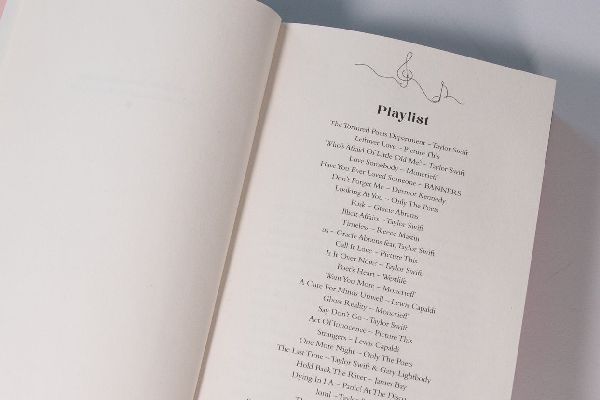 Playlist
The Tortured Poets Department – Taylor Swift
Leftover Love – Picture This
Who's Afraid Of Little Old Me? – Taylor Swift
Love Somebody – Moncrieff
Have You Ever Loved Someone – BANNERS
Don't Forget Me – Dermot Kennedy
Looking At You – Only The Poets
Risk – Gracie Abrams
Illicit Affairs – Taylor Swift
Timeless – Reece Mastin
us – Gracie Abrams feat. Taylor Swift
Call It Love – Picture This
Is It Over Now? – Taylor Swift
Poet's Heart – Westlife
Want You More – Moncrieff
A Cure For Minds Unwell – Lewis Capaldi
Ghost Reality – Moncrieff
Say Don't Go – Taylor Swift
Act Of Innocence – Picture This
Strangers – Lewis Capaldi
One More Night – Only The Poets
The Last Time – Taylor Swift & Gary Lightbody
Hold Back The River – James Bay
Dying In LA – Panic! At The Disco